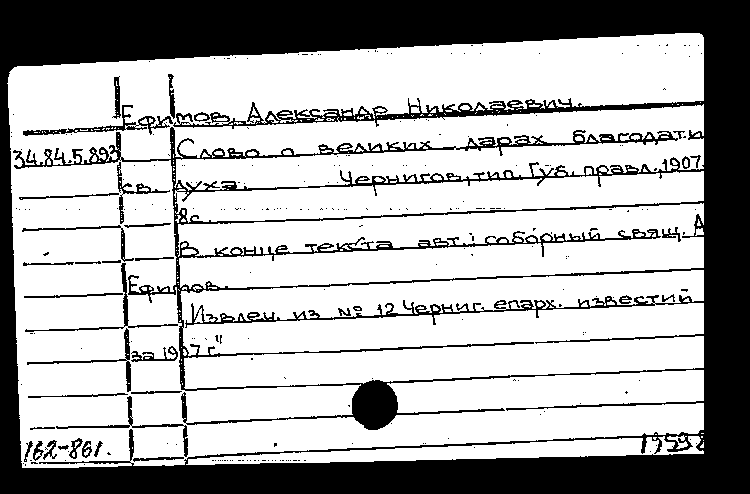 Ефимов, Александр Николаевич.
34.84.5.893 Слово о великих дарах благодати
св. духа. Чернигов, тип. Губ. правл., 1907.
8с.
В конце текста авт.: соборный свящ. А
Ефимов.
"Извлеч. из № 12 Черниг. епарх. известий
за 1907 г."
162-861.